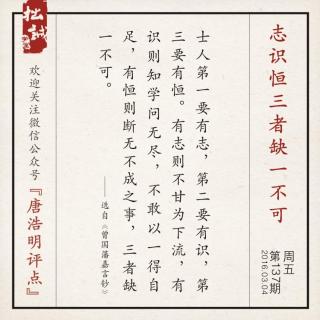 志识恒三者缺一不可
士人第一要有志，第二要有识，第
三要有恒。有志则不甘为下流，有
识则知学问无尽，不敢以一得自
足，有恒则断无不成之事，三者缺
一不可。
——选自《曾国藩嘉言钞》
拙诚
欢迎关注微信公众号
『唐浩明评点』
周五
第137期
2016.03.04